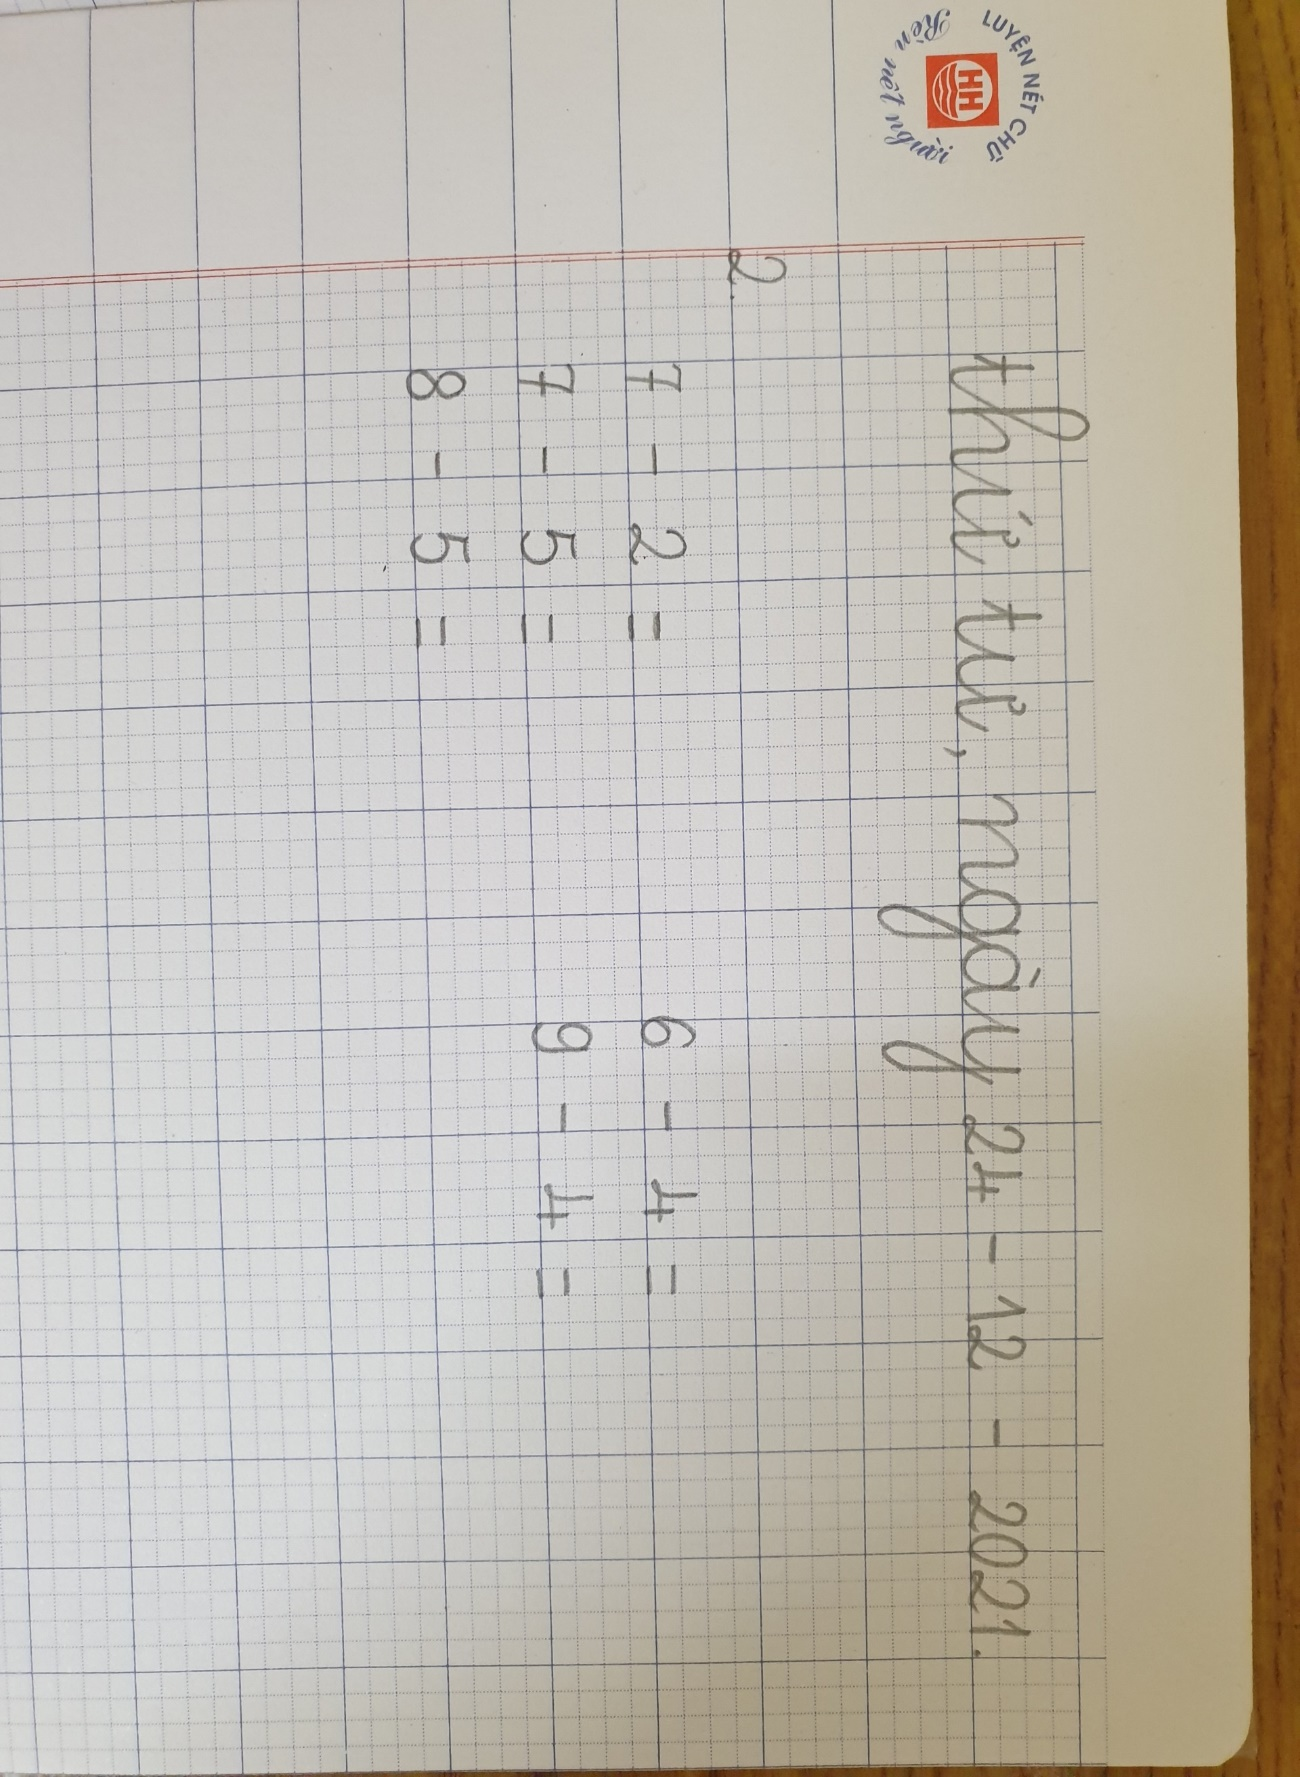 LUYỆN NÉT CHỮ
Rèn nết người
HH
thứ tư, ngày 24 - 12 - 2021.
2.
7 - 2 = 6 - 4 =
7 - 5 = 9 - 4 =
8 - 5 =